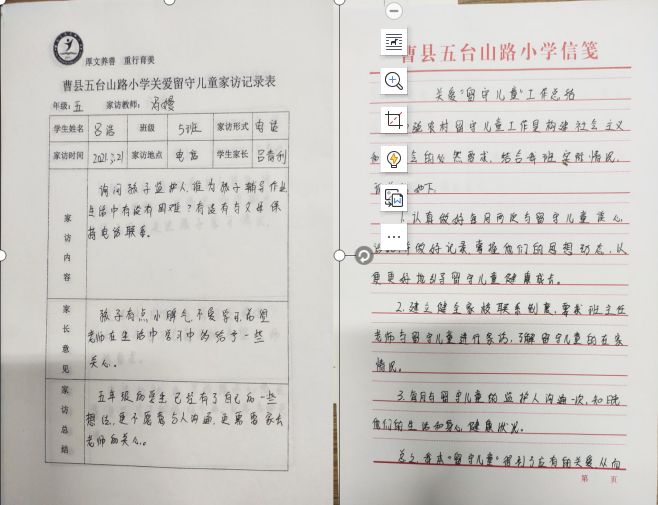 厚文养善 重行育美
曹县五台山路小学关爱留守儿童家访记录表
年级：五 家访教师：冯嫚
学生姓名 吕浩 班级 5班 家访形式 电话
家访时间 2021.3.21 家访地点 电话 学生家长
家访内容
询问孩子监护人，谁为孩子辅导作业
生活中有没有困难？有没有与父母保
持电话联系。
家长意见
孩子有点小脾气，不爱学习，希望
老师在生活中学习中的给予一些
关心。
家访总结
五年级的学生已经有了自己的一些
想法，更不愿意与人沟通，更需要家长
老师的关心。
曹县五台山路小学信笺
关爱"留守儿童"工作总结
农村留守儿童工作是构建社会主义
会的必然要求，结合我班实际情况，
如下
1.认真做好每月两次与留守儿童谈心，
做好记录，掌握他们的思想动态，以
便更好地引导留守儿童健康成长。
2.建立健全家校联系制度，要求班主任
老师与留守儿童进行家访，了解留守儿童的在家
情况。
3.每月与留守儿童的监护人沟通一次，知晓
他们的生活和身心健康状况。
总之，我本"留守儿童"得到了应有的关爱，从而
第 页